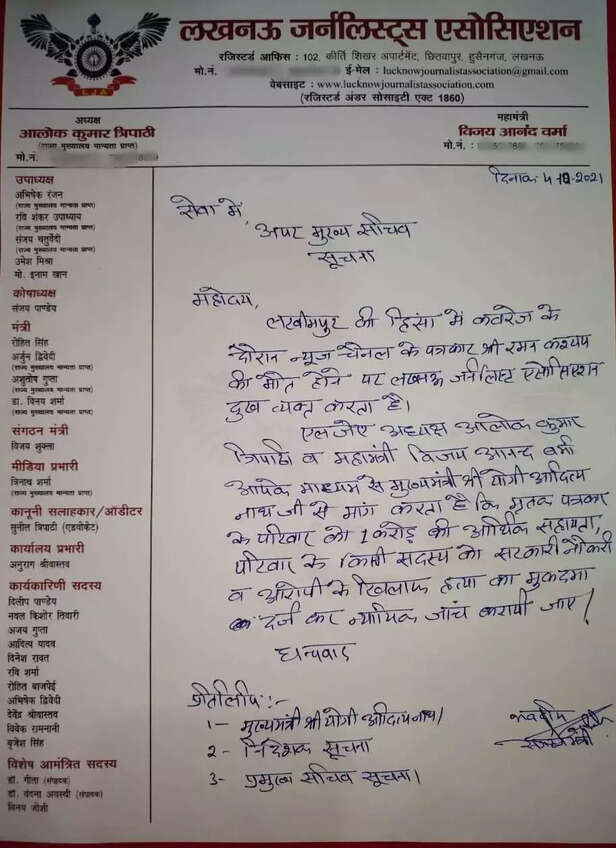 लखनऊ जर्नलिस्ट्स एसोसिएशन
रजिस्टर्ड आफिस : 102, कीर्ति शिखर अपार्टमेंट, छितवापुर, हुसैनगंज, लखनऊ
मो.नं. ई-मेल : lucknowjournalistassociation@gmail.com
वेबसाइट : www.lucknowjournalistassociation.com
(रजिस्टर्ड अंडर सोसाइटी एक्ट 1860)
LJA
अध्यक्ष
आलोक कुमार त्रिपाठी
(राज्य मुख्यालय मान्यता प्राप्त)
मो.नं.
महामंत्री
विजय आनंद वर्मा
मो.नं. :
उपाध्यक्ष
अभिषेक रंजन
(राज्य मुख्यालय मान्यता प्राप्त)
रवि शंकर उपाध्याय
(राज्य मुख्यालय मान्यता प्राप्त)
संजय चतुर्वेदी
(राज्य मुख्यालय मान्यता प्राप्त)
उमेश मिश्रा
मो. इनाम खान
कोषाध्यक्ष
संजय पाण्डेय
मंत्री
रोहित सिंह
अर्जुन द्विवेदी
(राज्य मुख्यालय मान्यता प्राप्त)
आशुतोष गुप्ता
(राज्य मुख्यालय मान्यता प्राप्त)
डा. विनय शर्मा
(राज्य मुख्यालय मान्यता प्राप्त)
संगठन मंत्री
विजय शुक्ला
मीडिया प्रभारी
त्रिनाथ शर्मा
(राज्य मुख्यालय मान्यता प्राप्त)
कानूनी सलाहकार/ऑडीटर
सुनील त्रिपाठी (एडवोकेट)
कार्यालय प्रभारी
अनुराग श्रीवास्तव
कार्यकारिणी सदस्य
दिलीप पाण्डेय
नवल किशोर तिवारी
अजय गुप्ता
आदित्य यादव
दिनेश रावत
रवि शर्मा
रोहित बाजपेई
अभिषेक द्विवेदी
देवेंद्र श्रीवास्तव
विवेक रामनानी
बृजेश सिंह
विशेष आमंत्रित सदस्य
डॉ. गीता (संपादक)
डॉ. वंदना अवस्थी (संपादक)
विनय जोशी
दिनांक 5-10-2021
सेवा में,
अपर मुख्य सचिव
सूचना
महोदय,
लखीमपुर की हिंसा में कवरेज के
दौरान न्यूज चैनल के पत्रकार श्री रमन कश्यप
की मौत होने पर लखनऊ जर्नलिस्ट एसोसिएशन
दुख व्यक्त करता है।
एलजेए अध्यक्ष आलोक कुमार
त्रिपाठी व महामंत्री विजय आनंद वर्मा
आपके माध्यम से मुख्यमंत्री श्री योगी आदित्य
नाथ जी से मांग करता है कि मृतक पत्रकार
के परिवार को 1 करोड़ की आर्थिक सहायता,
परिवार के किसी सदस्य को सरकारी नौकरी
व आरोपी के खिलाफ हत्या का मुकदमा
दर्ज कर न्यायिक जांच करायी जाए।
धन्यवाद
प्रतिलिपि :-
1- मुख्यमंत्री श्री योगी आदित्यनाथ।
2- निदेशक सूचना
3- प्रमुख सचिव सूचना।
भवदीय